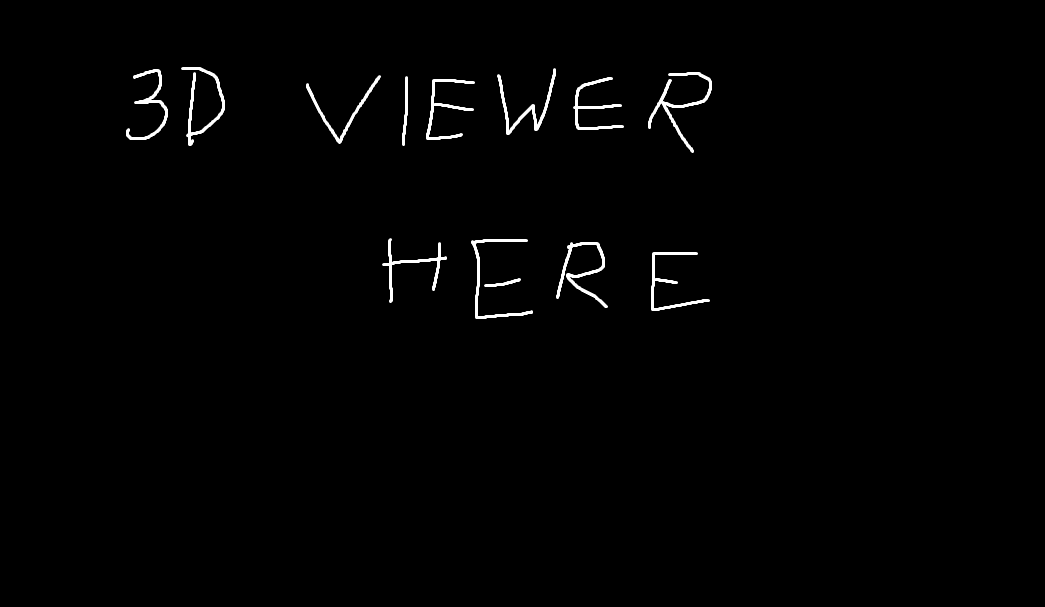 3D VIEWER
HERE